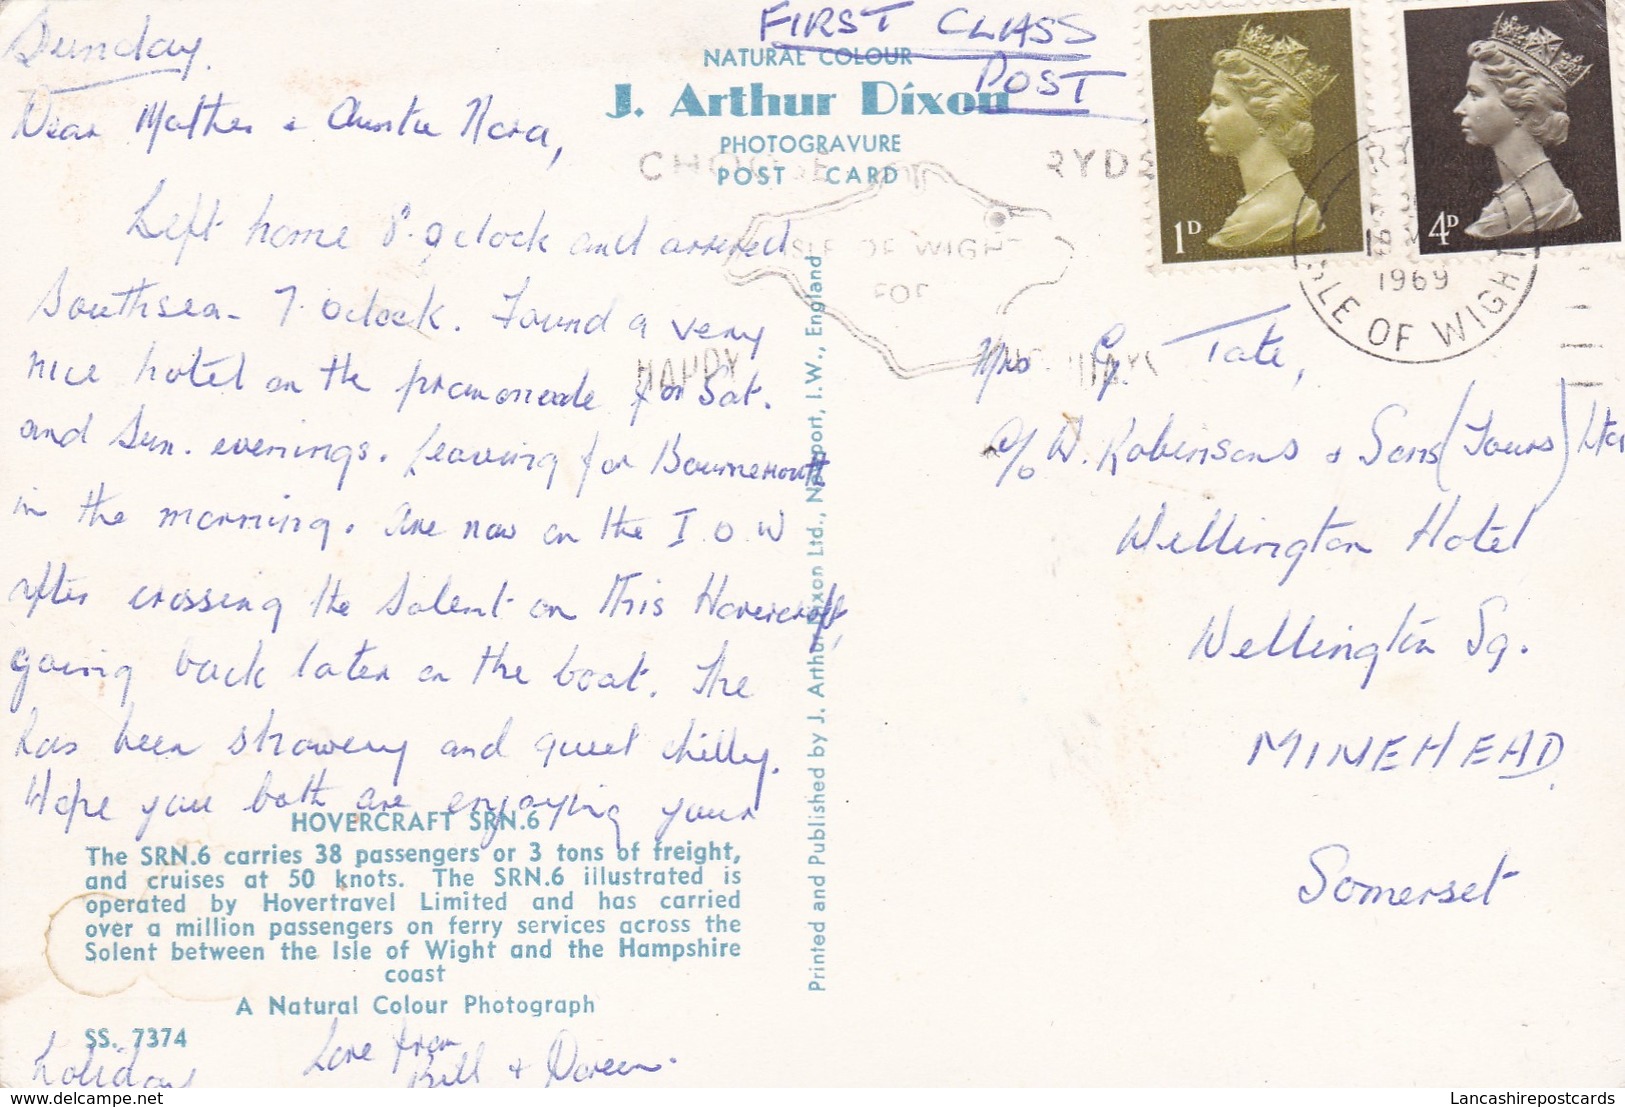 Sunday.
Dear Mother & Auntie Nora,
Left home 8. oclock and arrived
Southsea - 7 oclock. Found a very
nice hotel on the promonade for Sat.
and Sun. evenings. Leaving for Bournemouth
in the morning. are now on the I.O.W
after crossing the Solent on this Hovercraft,
going back later on the boat. The
has been showery and quiet chilly.
Hope you both are enjoying your
holiday
Love from
Bill & Doreen.
HOVERCRAFT SRN.6
The SRN.6 carries 38 passengers or 3 tons of freight,
and cruises at 50 knots. The SRN.6 illustrated is
operated by Hovertravel Limited and has carried
over a million passengers on ferry services across the
Solent between the Isle of Wight and the Hampshire
coast
A Natural Colour Photograph
SS. 7374
FIRST CLASS
POST
NATURAL COLOUR
J. Arthur Dixon
PHOTOGRAVURE
POST CARD
CHOOSE RYDE
ISLE OF WIGHT
FOR
HAPPY
Printed and Published by J. Arthur Dixon Ltd., Newport, I.W., England
1D
4D
1969
ISLE OF WIGHT
Mrs G. Tate,
c/o W. Robinsons & Sons (Tours) Ltd
Wellington Hotel
Wellington Sq.
MINEHEAD,
Somerset
www.delcampe.net
Lancashirepostcards